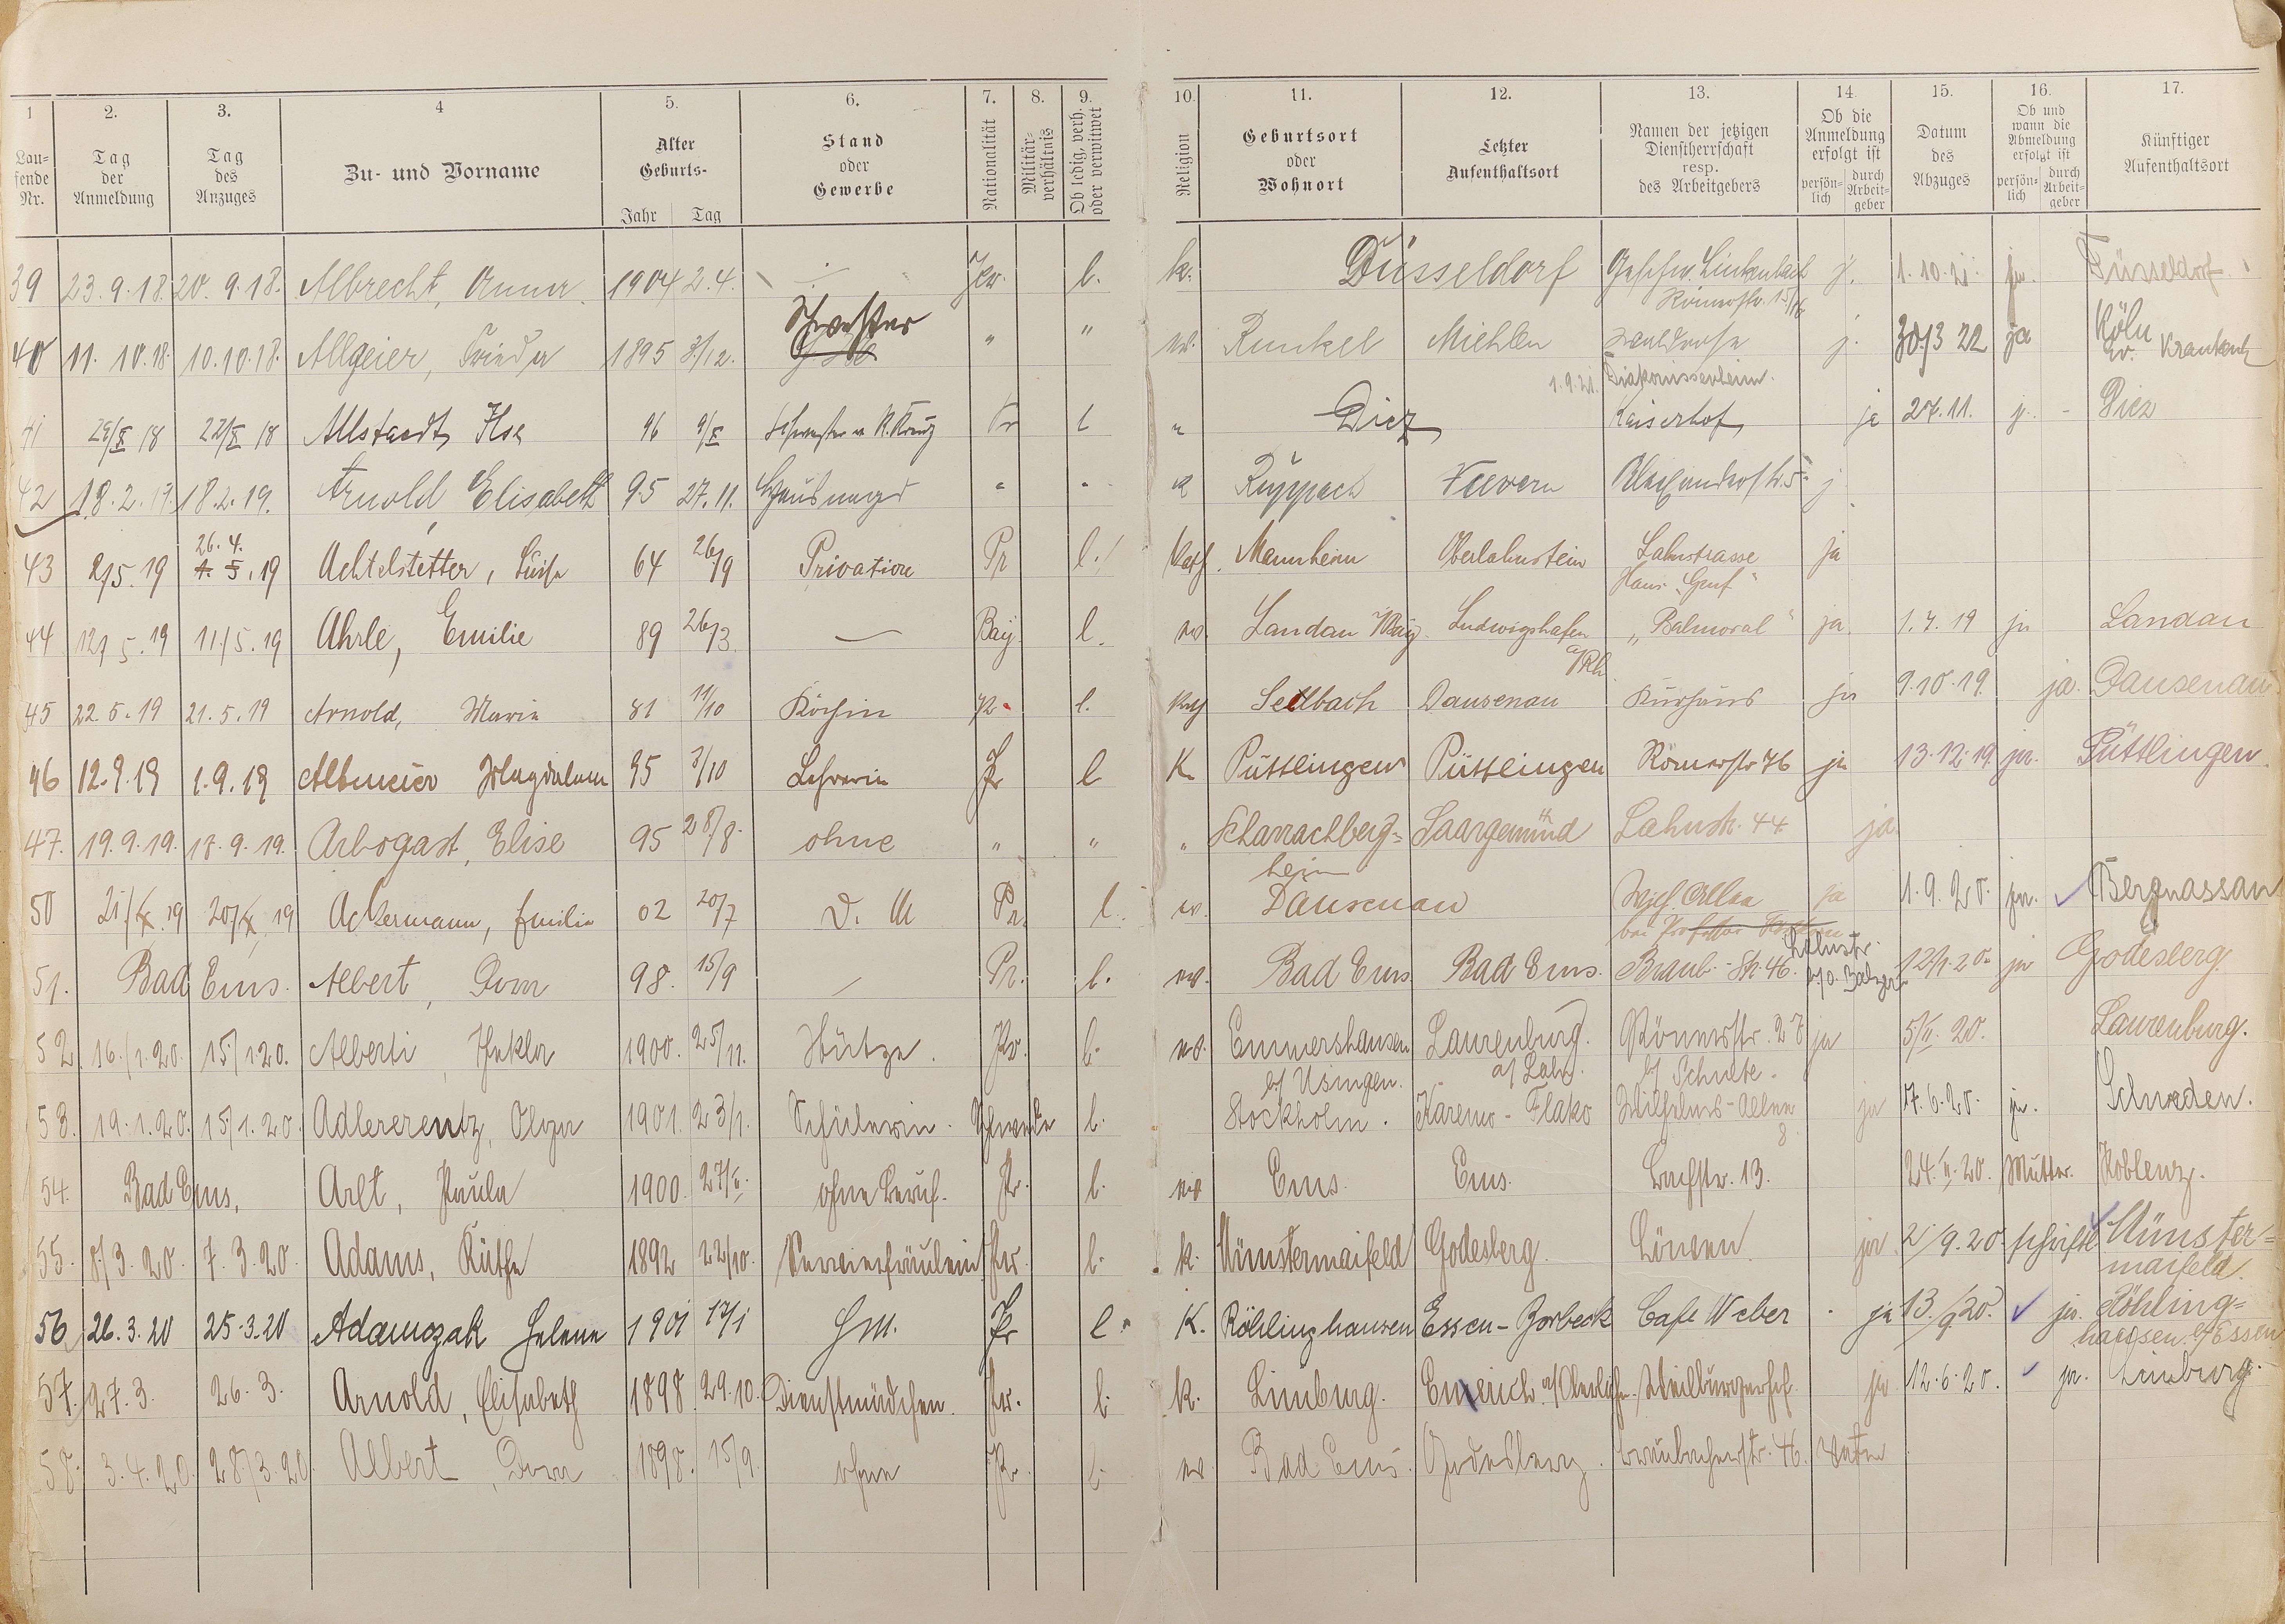 1 2. 3. 4 5. 6. 7. 8. 9. 10. 11. 12. 13. 14. 15. 16. 17.
Lau-
fende
Nr.
Tag
der
Anmeldung
Tag
des
Anzuges
Zu- und Vorname
Alter
Geburts-
Jahr Tag
Stand
oder
Gewerbe
Nationalität
Militär-
verhältnis
Ob ledig, verh.
oder verwitwet
Religion
Geburtsort
oder
Wohnort
Letzter
Aufenthaltsort
Namen der jetzigen
Dienstherrschaft
resp.
des Arbeitgebers
Ob die
Anmeldung
erfolgt ist
persön-
lich
durch
Arbeit-
geber
Datum
des
Abzuges
Ob und
wann die
Abmeldung
erfolgt ist
persön-
lich
durch
Arbeit-
geber
Künftiger
Aufenthaltsort
39 23.9.18. 20.9.18. Albrecht, Anna 1904 2.4. Pr. l. k. Düsseldorf Geschw. Linkenbach j. 1.10.21. ja. Düsseldorf
Römerstr. 15/16
Schwester
40 11.10.18. 10.10.18. Allgeier, Frieda 1895 3/12. " " ev. Runkel Miehlen j. 30/3 22 ja Köln
Ev. Krankenh
1.9.21. Diakonissenheim.
41 22/X 18 Allstaedt, Ilse 96 9/X Schwester v. R. Kreuz Pr l " Diez Kaiserhof ja 27.11. j. - Diez
42 18.2.19. 18.2.19. Arnold Elisabeth 95 27.11. Hausmagd " " k Ruppach Alexanderstr. 5 j
26.4.
43 2/5.19 1.5.19 Achtelstetter, Luise 64 26/9 Privatiere Pr l. Kath. Mannheim Oberlahnstein Lahnstrasse ja
Haus "Genf"
44 12/5.19 11/5.19 Ahrle, Emilie 89 26/3. — Bay. l. ev. Landau i/Bay. Ludwigshafen "Balmoral" ja. 1.7.19 ja Landau
a/Rh.
45 22.5.19 21.5.19 Arnold, Marie 81 11/10 Köchin Pr. l. Seelbach Dausenau Kurhaus ja 9.10.19. ja. Dausenau
46 12.9.19 1.9.19 Altmeier Magdalena 95 3/10 Lehrerin Pr l K. Püttlingen Püttlingen Römerstr 76 ja 13.12.19. ja. Püttlingen.
47. 19.9.19. 18.9.19. Arbogast, Elise 95 28/8. ohne " " " Scharrachberg= Saargemünd Lahnstr. 44 ja.
heim
50 21/X.19 20/X 19 Ackermann, Emilie 02 20/7 D. M Pr. l. ev. Dausenau Wilh. Allee ja 1.9.20. ja. Bergnassau
bei Professor
Lahnstr.
51. Bad Ems. Albert, Dora 98. 15/9 Pr. l. ev. Bad Ems. Bad Ems. Braub.-Str. 46. b/o. Balzer 12/1.20. ja Godesberg.
52 16./1.20. 15/1.20. Alberti, Thekla 1900. 25/11. Stütze. Pr. l. ev. Emmershausen Laurenburg. Römerstr. 27 ja 5/II.20. Laurenburg.
b/ Usingen. a/ Lahn. b/ Schulte.
53. 19.1.20. 15/1.20. Adlererentz, Olga 1901. 23/1. Schülerin. Schwede l. Stockholm. Karemo-Flako Wilhelms-Allee ja 17.6.20. ja. Schweden.
8
54. Bad Ems, Arlt, Paula 1900. 27/II. ohne Beruf. Pr. l. ev Ems. Ems. Bachstr. 13. 24.II.20. Mutter. Koblenz.
55. 8/3.20. 7.3.20. Adams, Käthe 1892 22/10. Servierfräulein Pr. l. k. Münstermaifeld Godesberg. Löwen ja 2/9.20. schriftl. Münster=
maifeld.
56 26.3.20 25.3.20 Adamczak Helene 1901 17/1 Hm. Pr l. K. Röhlinghausen Essen-Borbeck Cafe Weber ja 13./9.20. ja. Röhling=
hausen b/Essen
57. 27.3. 26.3. Arnold, Elisabeth 1898. 29.10. Dienstmädchen. Pr. l. k. Limburg. Weilburgerhof. ja 12.6.20. ja. Limburg.
58. 3.4.20. 28/3.20. Albert, Dora 1898. 15/9. ohne Pr. l. ev. Bad Ems. Godesberg. Braubacherstr. 46. Vater